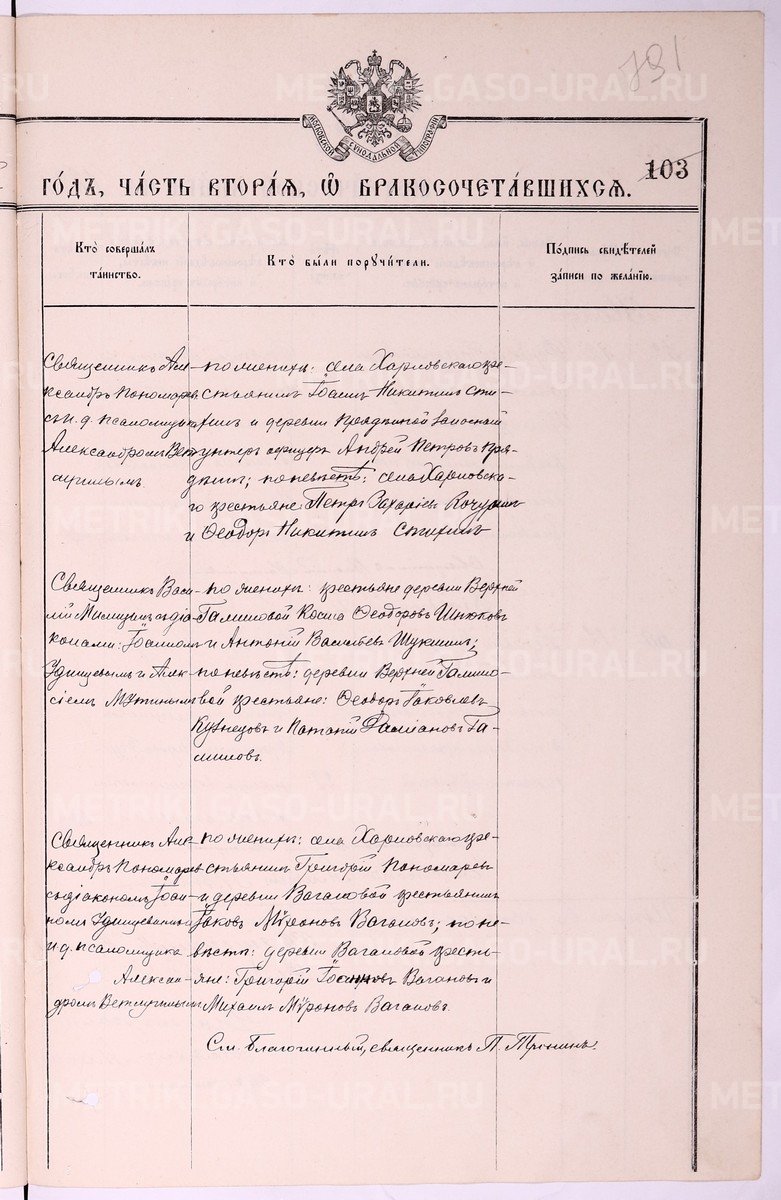 191
МОСКОВСКОЙ СѴНОДАЛЬНОЙ ТИПОГРАФІИ
103
ГО́ДЪ, ЧА́СТЬ ВТОРА́Я, Ѡ҆ БРАКОСОЧЕТА́ВШИХСЯ.
Кто̀ соверша́лъ
та́инство.
Кто̀ бы́ли порꙋчи́тели.
По́дпись свидѣ́телей
за́писи по жела́нїю.
Священникъ Але-
ксандръ Пономаревъ
съ и. д. псаломщика
Александромъ Вет-
лугинымъ
по женихѣ: села Харловскаго кре-
стьянинъ Іоаннъ Никитинъ Сти-
хинъ и деревни Прядкиной запасный
унтеръ офицеръ Андрей Петровъ Пря-
дкинъ; по невѣстѣ: села Харловска-
го крестьяне: Петръ Захаріевъ
и Ѳеодоръ Никитинъ Стихинъ
Священникъ Васи-
лій съ діа-
конами: Іоанномъ
Удинцевымъ и Алек-
сіемъ Мутинымъ
по женихѣ: крестьяне деревни Верхней
Косма Ѳеодоровъ
и Антоній Васильевъ
по невѣстѣ: деревни Верхней
крестьяне: Ѳеодоръ Іаковлевъ
Кузнецовъ и
Священникъ Але-
ксандръ Пономаревъ
съ діакономъ Іоан-
номъ Удинцевымъ и
и. д. псаломщика
Алексан-
дромъ Ветлугинымъ
по женихѣ: села Харловскаго кре-
стьянинъ Григорій Пономаревъ
и деревни Вагановой крестьянинъ
Іаковъ Мѵроновъ Вагановъ; по не-
вѣстѣ: деревни Вагановой кресть-
яне: Григорій Іоанновъ Вагановъ и
Михаилъ Мѵроновъ Вагановъ.
См. Благочинный, священникъ П.
METRIKI.GASO-URAL.RU